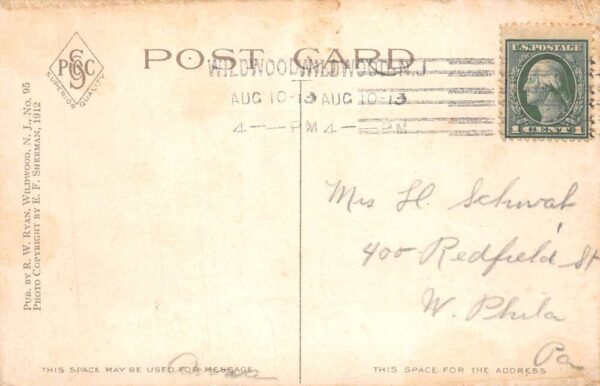 POST CARD
PSCC
SUPERIOR QUALITY
WILDWOOD WILDWOOD N.J.
AUG 10-13 AUG 10-13
4 — PM 4 — PM
U.S. POSTAGE
1 CENT 1
PUB. BY R. W. RYAN, WILDWOOD, N. J., NO. 95
PHOTO COPYRIGHT BY E. F. SHERMAN, 1912
Mrs H. Schwab
400 Redfield St
W. Phila
Pa
THIS SPACE MAY BE USED FOR MESSAGE
THIS SPACE FOR THE ADDRESS